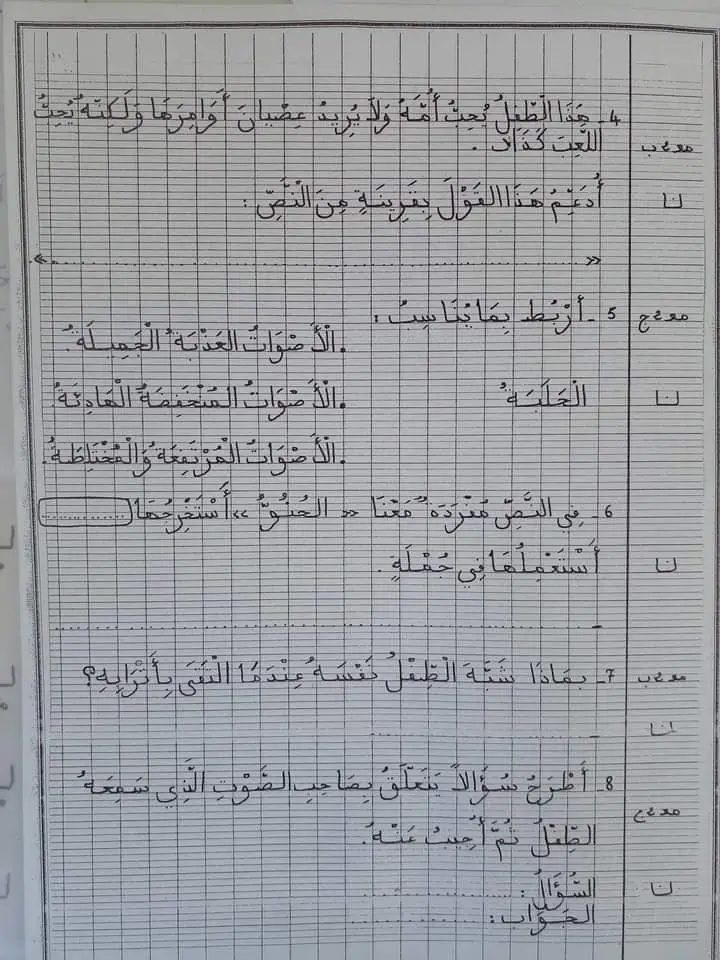 4 - هَذَا الْطِّفْلُ يُحِبُّ أُمَّهُ وَلاَ يُرِيدُ عِصْيَانَ أَوَامِرَهَا وَلَكِنَّهُ يُحِبُّ
مع2ب
اللَّعِبَ كَذَلِكَ .
أُدَعِّمُ هَذَا القَوْلَ بِقَرِينَةٍ مِنَ الْنَّصِّ :
«..........................................»
5 - أَرْبُط بِمَا يُنَاسِبُ :
مع2ج
.الْأَصْوَاتُ العَذْبَةُ الْجَمِيلَةُ.
الْجَلَبَةُ
.الْأَصْوَاتُ المُنْخَفِضَةُ الْهَادِئَةُ.
.الْأَصْوَاتُ الْمُرْتَفِعَةُ وَالْمُخْتَلِطَةُ.
6 - فِي النَّصِّ مُفْرَدَةٌ مَعْنَا « الحُنُوُّ » أَسْتَخْرِجُهَا ............
أَسْتَعْمِلُهَا فِي جُمْلَةٍ .
- ..........................................
7 - بِمَاذَا شَبَّهَ الْطِّفْلُ نَفْسَهُ عِنْدَمَا الْتَقَى بِأَتْرَابِهِ؟
مع2ب
- ..........................
8 - أَطْرَحُ سُؤَالاً يَتَعَلَّقُ بِصَاحِبِ الصَّوْتِ الَّذِي سَمِعَهُ
مع2ج
الطِّفْلُ ثُمَّ أُجِيبُ عَنْهُ.
السُّؤَالُ : ..........................
الجَوَاب : ..........................